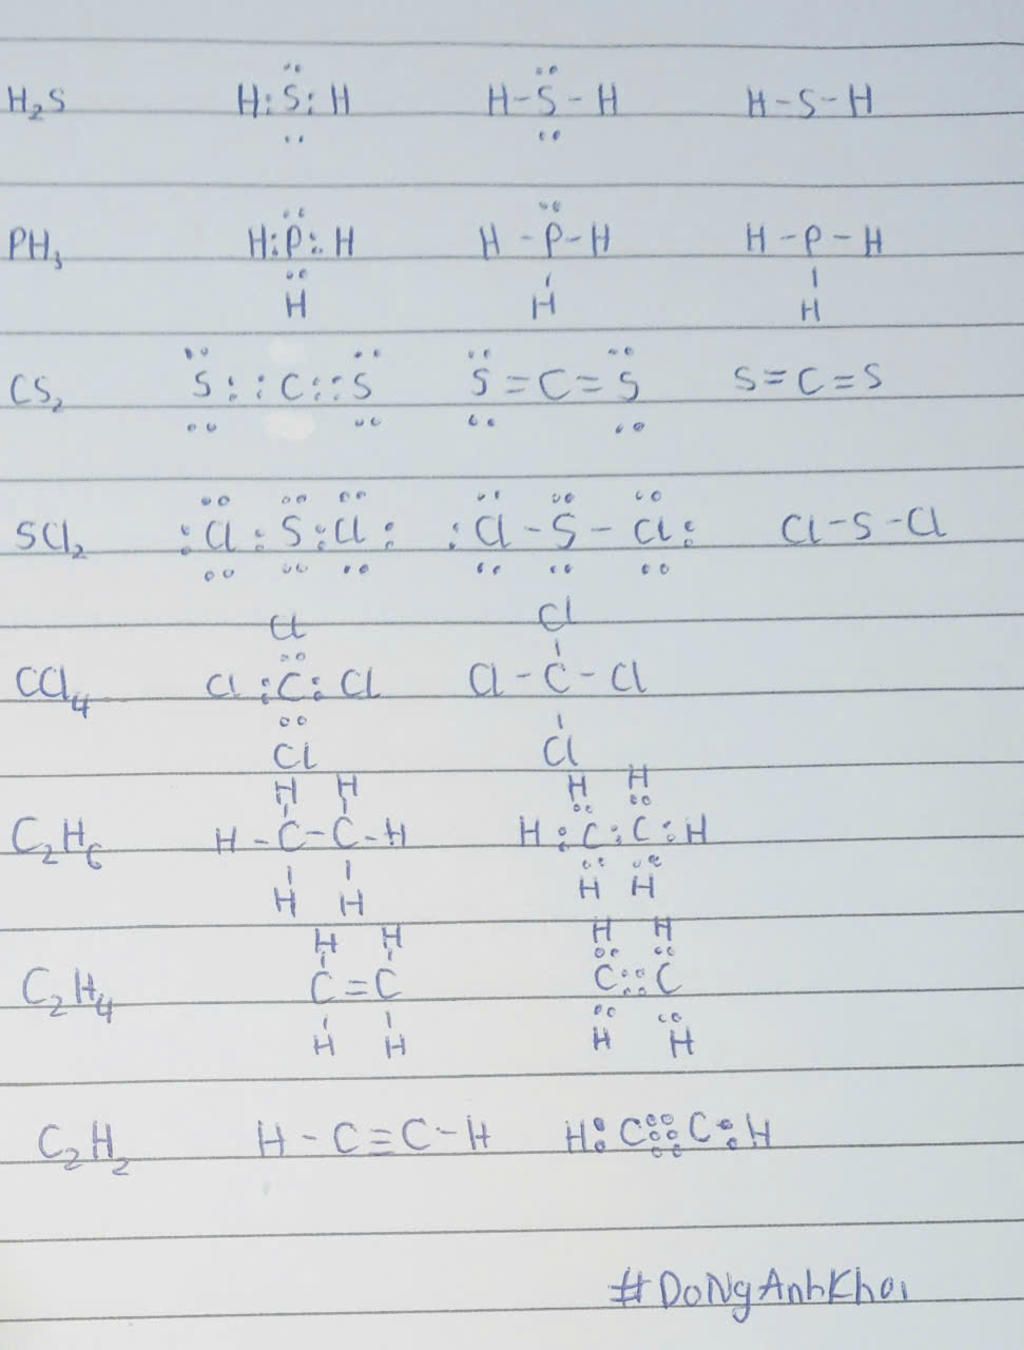 H₂S H:S:H H-S-H H-S-H
PH₃ H:P:H H-P-H H-P-H
H H H
CS₂ S::C::S S=C=S S=C=S
SCl₂ :Cl:S:Cl: :Cl-S-Cl: Cl-S-Cl
Cl Cl
CCl₄ Cl:C:Cl Cl-C-Cl
Cl Cl
H H H H
C₂H₆ H-C-C-H H:C:C:H
H H H H
H H H H
C₂H₄ C=C C::C
H H H H
C₂H₂ H-C≡C-H H:C:::C:H
#DoNgAnhKhoi